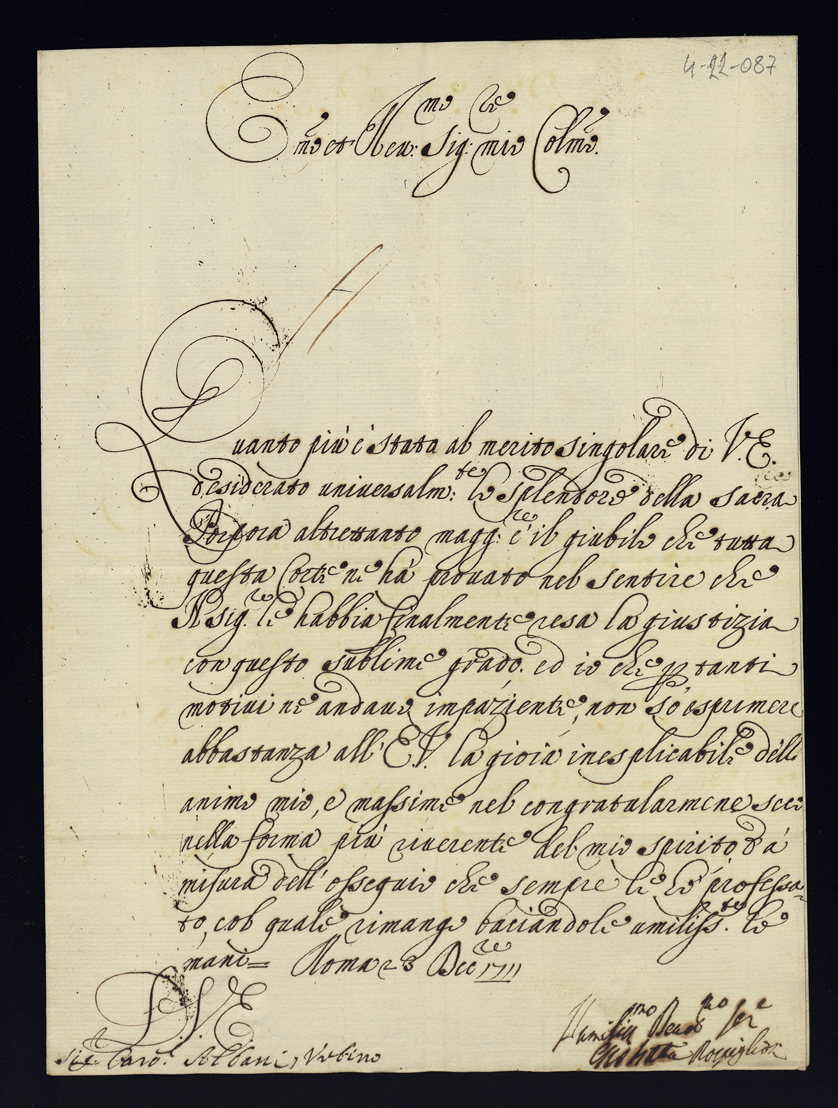 4-22-087
Em̃o et Reu:mo Sig:re mio Colmo.
Quanto più è stata al merito singolare di V.E.
desiderato uniuersalm:te lo splendore della sacra
Porpora altrettanto magg:re è il giubilo che tutta
questa Corte ne hà prouato nel sentire che
N sig:re le habbia finalmente resa la giustizia
con questo sublime grado. ed io che tanti
motiui ne andauo impaziente, non sò esprimere
abbastanza all' E.V. la gioia inesplicabile dell
animo mio, e massime nel congratularmene seco
nella forma più riuerente del mio spirito à
misura dell' ossequio che sempre le hò professa-
to, col quale rimango baciandole umiliss:te le
mani= Roma 23 Dec:re 1711
D. V. E
Sig.r Card. Albani, Vrbino
Humiliss:mo Deuot:mo Ser:e
Rospigliosi